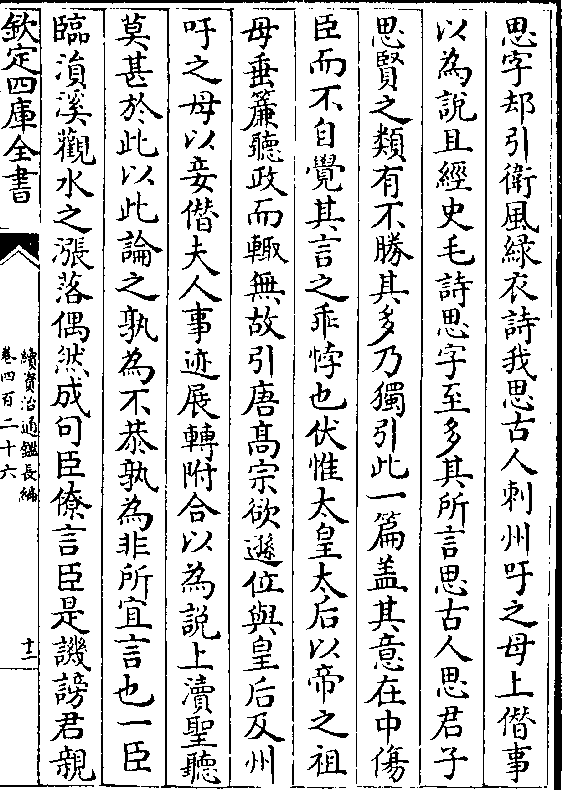 思字却引衛風緑衣詩我思古人刺州吁之母上僭事
以為說且經史毛詩思字至多其所言思古人思君子
思賢之類有不勝其多乃獨引此一篇盖其意在中傷
臣而不自覺其言之乖悖也伏惟太皇太后以帝之祖
母垂簾聽政而輙無故引唐髙宗欲遜位與皇后及州
吁之母以妾僭夫人事迹展轉附合以為說上瀆聖聽
莫甚於此以此論之孰為不恭孰為非所宜言也一臣
臨湏溪觀水之漲落偶然成句臣僚言臣是譏謗君親
欽定四庫全書
續資治通鑑長編
卷四百二十六
十二